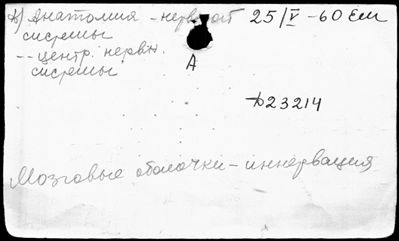 в) Анатомия - нервной 25/V - 60 Ем
системы
-- центр. нервн.
системы
А
23214
Мозговые оболочки - иннервация